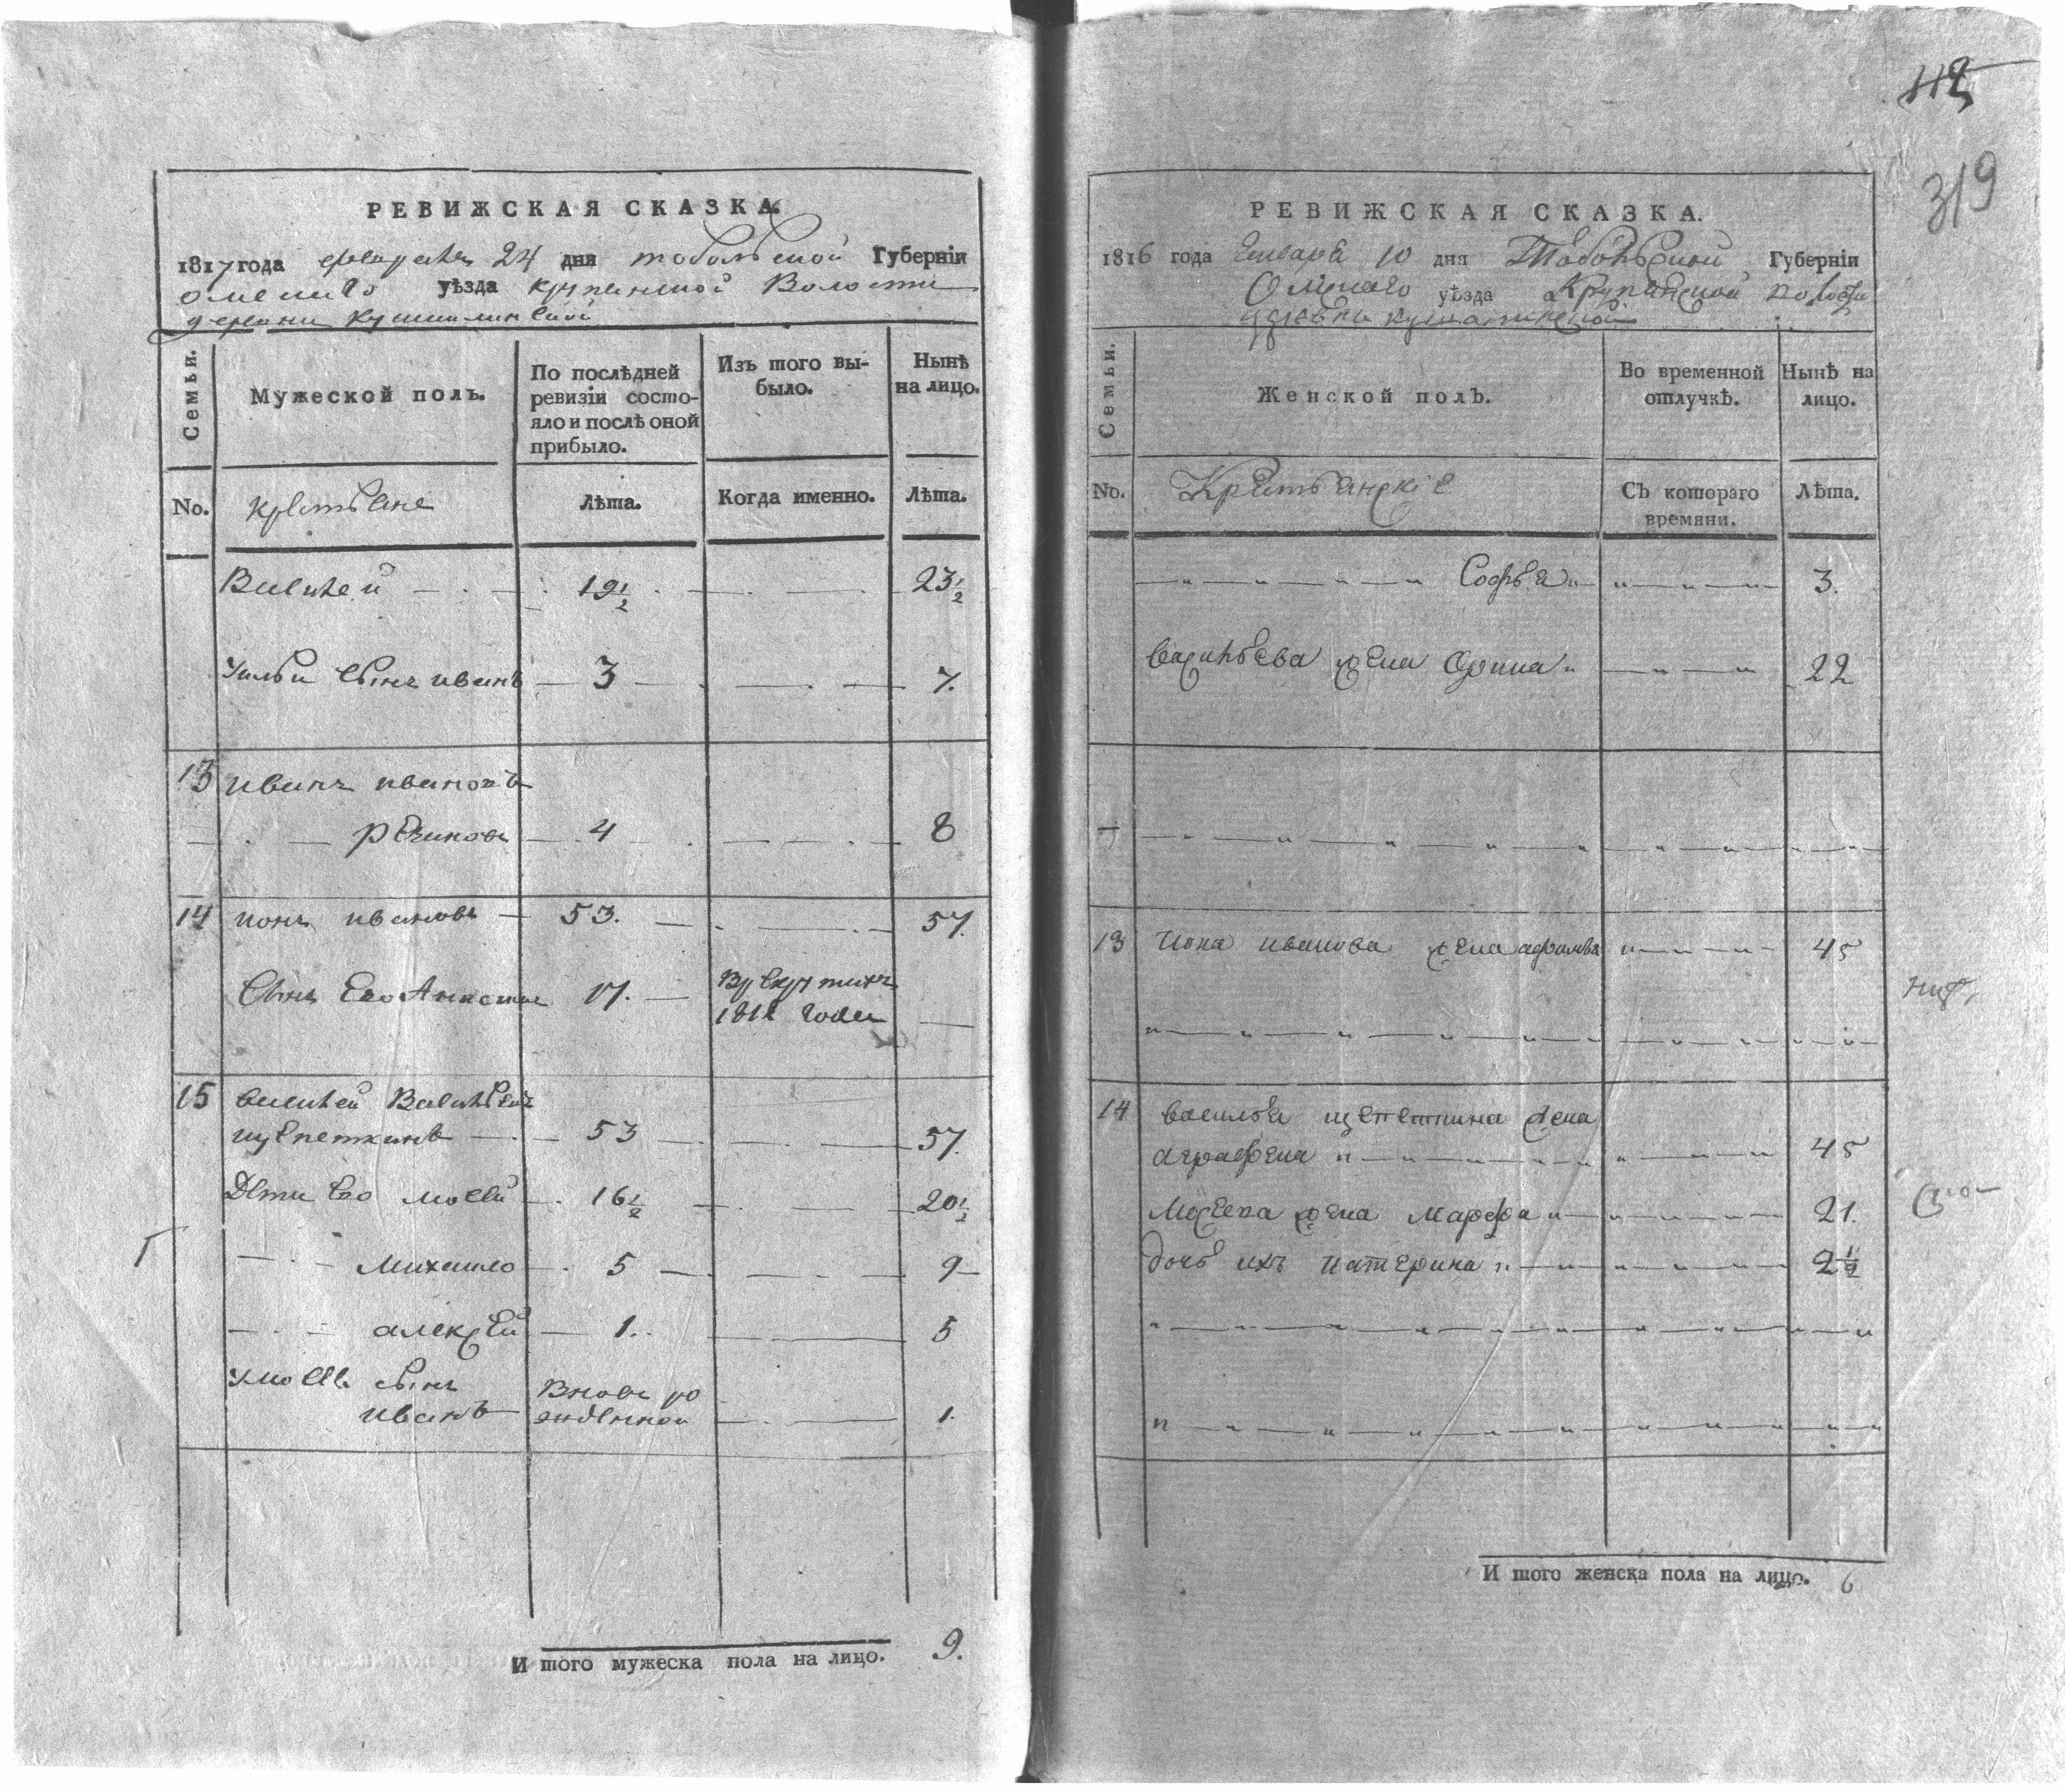 112
319
РЕВИЖСКАЯ СКАЗКА.
1817 года февраля 24 дня тобольской Губерніи
омскаго уѣзда крупянской Волости
деревни
Семьи.
Мужеской полъ.
По послѣдней ревизіи состо-
яло и послѣ оной прибыло.
Изъ того вы-
было.
Нынѣ
на лицо.
No.
крестьяне
Лѣта.
Когда именно.
Лѣта.
Василей 19 1/2 23 1/2
Ильи сынъ иванъ 3 7.
13 иванъ ивановъ
4 8
14 ионъ ивановъ 53. 57.
Сынъ Его 17. Врекрутахъ
1812 года
15 василей Василь
щепеткинъ 53 57.
Дети Его мосей 16 1/2 20 1/2
Михаило 5 9
алексей 1. 5
Умосея сынъ
иванъ Вновь ро
жденной 1.
И того мужеска пола на лицо. 9.
РЕВИЖСКАЯ СКАЗКА.
1816 года Генваря 10 дня Тобольской Губерніи
Омскаго уѣзда Крупянской волости
деревни
Семьи.
Женской полъ.
Во временной
отлучкѣ.
Нынѣ на
лицо.
No.
Крестьянскіе
Съ котораго
времяни.
Лѣта.
Софья 3.
васильева жена Орина 22
13 Иона иванова жена 45
14 василья щепеткина жена
аграфена 45
Мосеева жена марфа 21.
дочь ихъ катерина 2 1/2
И того женска пола на лицо. 6